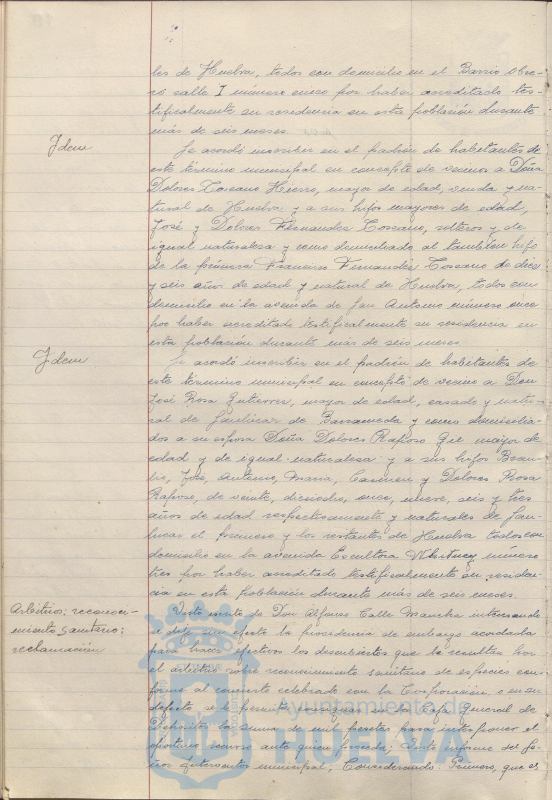 les de Huelva, todos con domicilio en el Barrio Obre-
ro calle I número cinco por haber acreditado tes-
tificalmente su residencia en esta población durante
más de seis meses.
Idem
Se acordó inscribir en el padrón de habitantes de
este término municipal en concepto de vecinos a Doña
Dolores Toscano Hierro, mayor de edad, viuda y na-
tural de Huelva y a sus hijos mayores de edad,
José y Dolores Fernandez Toscano, solteros y de
igual naturaleza y como domiciliado al también hijo
de la primera Francisco Fernandez Toscano de diez
y seis años de edad y natural de Huelva, todos con
domicilio en la avenida de San Antonio número once
por haber acreditado testificalmente su residencia en
esta población durante más de seis meses.
Idem
Se acordó inscribir en el padrón de habitantes de
este término municipal en concepto de vecino a Don
José Rosa Gutierrez, mayor de edad, casado y natu-
ral de Sanlúcar de Barrameda y como domicilia-
dos a su esposa Doña Dolores Raposo Gil mayor de
edad y de igual naturaleza y a sus hijos
José, Antonio, Maria, Carmen y Dolores Rosa
Raposo, de veinte, dieciocho, once, nueve, seis y tres
años de edad respectivamente y naturales de San-
lucar el primero y los restantes de Huelva todos con
domicilio en la avenida Escultora Whitney número
tres por haber acreditado testificalmente su residen-
cia en esta población durante más de seis meses.
Arbitrios; reconoci-
miento sanitario;
reclamación
Visto escrito de Don Alfonso Calle Mancha interesando
se deje sin efecto la providencia de embargo acordada
para hacer efectivos los descubiertos que le resultan por
el arbitrio sobre reconocimiento sanitario de especies con-
forme al concierto celebrado con la Corporación, o en su
defecto, se le permita consignar en la Caja General de
Depósitos la suma de mil pesetas para interponer el
oportuno recurso ante quien proceda; Visto informe del Se-
ñor Interventor municipal; Considerando: Primero, que el
Ayuntamiento de
HUELVA